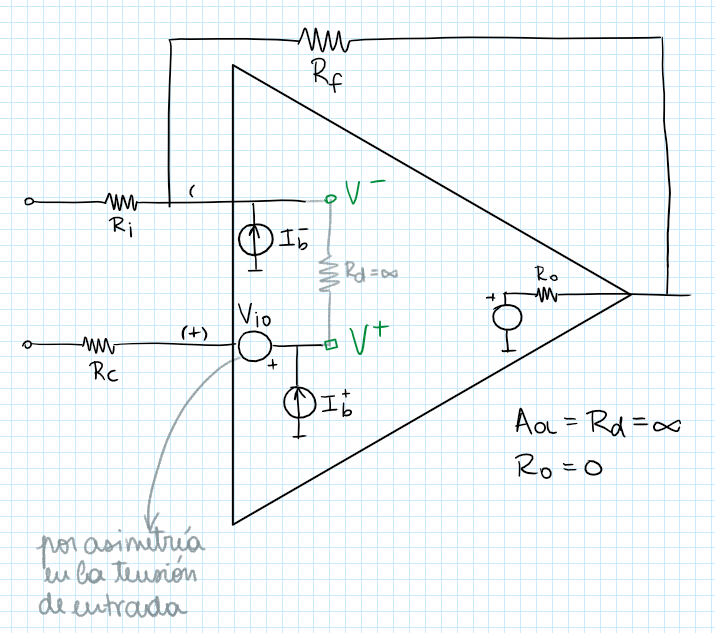 Rf
(
V⁻
Ri
Ib⁻
Rd=∞
Ro
+
Vio
(+)
V⁺
+
Rc
Ib⁺
Aol = Rd = ∞
Ro = 0
por asimetría
en la tensión
de entrada